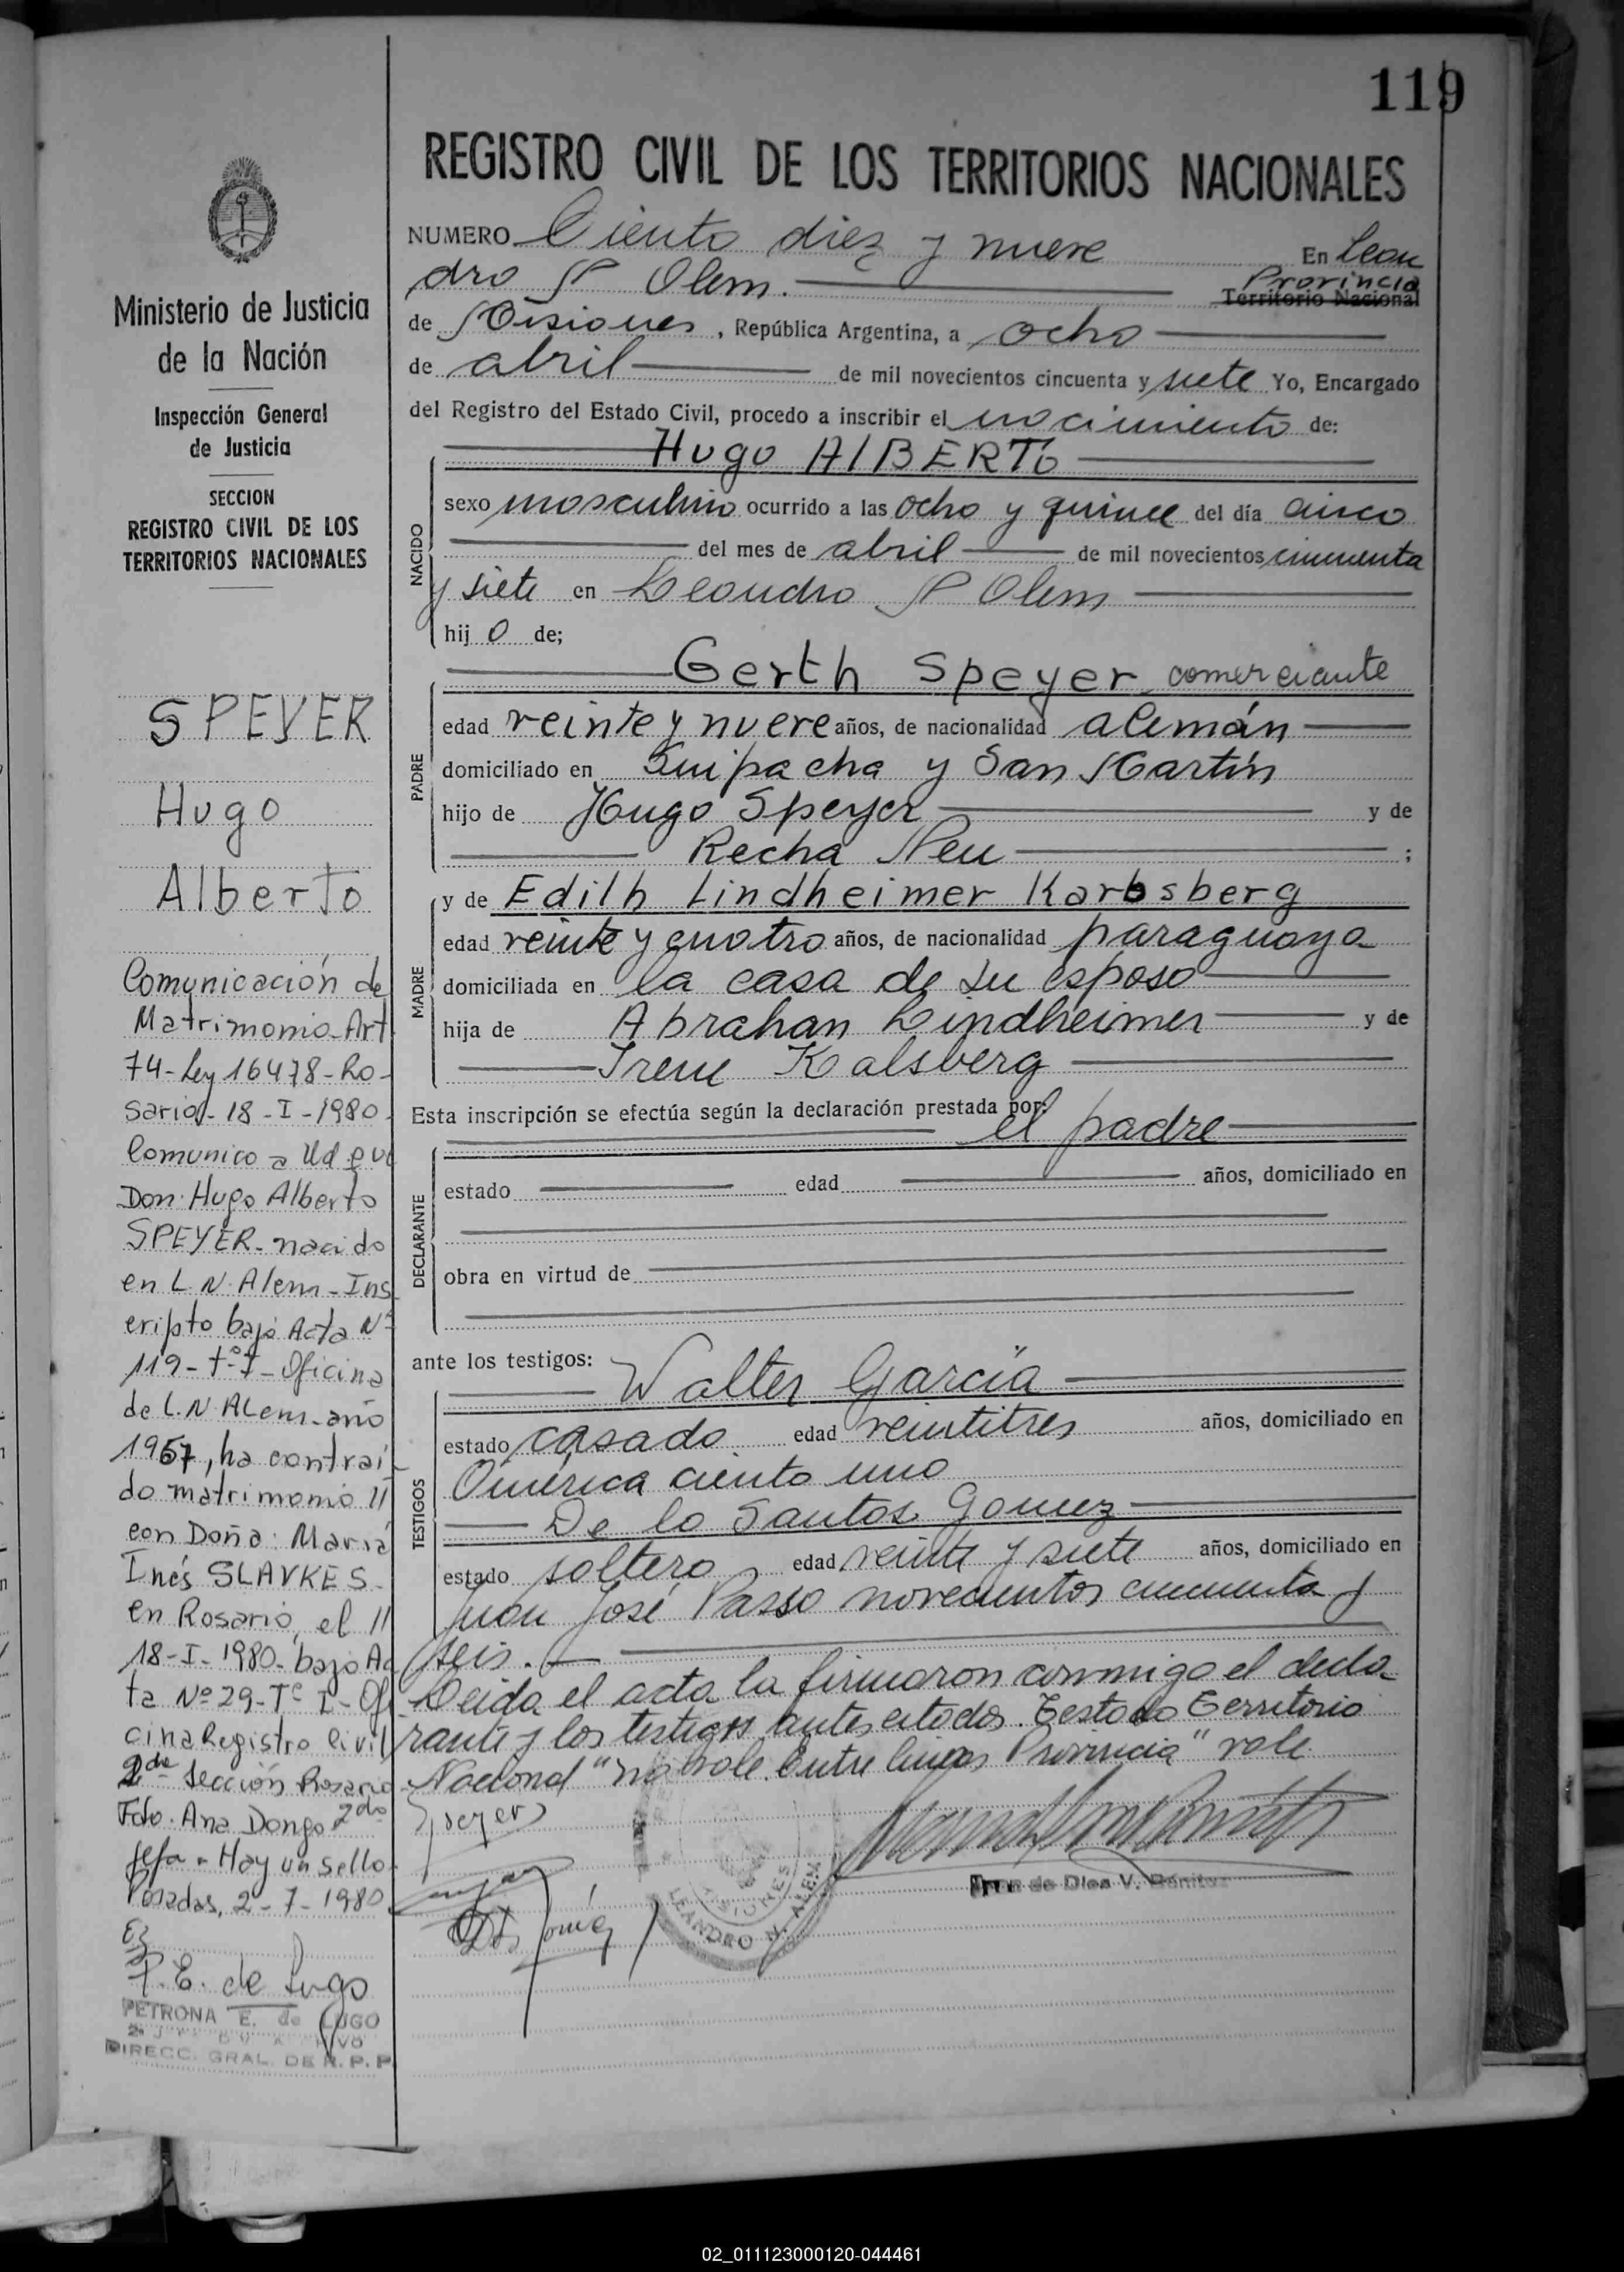 119
REGISTRO CIVIL DE LOS TERRITORIOS NACIONALES
NUMERO Ciento diez y nueve En Lean
dro N Alem. Provincia
Territorio Nacional
de Misiones, República Argentina, a ocho
de abril de mil novecientos cincuenta y siete Yo, Encargado
del Registro del Estado Civil, procedo a inscribir el nacimiento de:
Hugo AlBERTo
NACIDO
sexo masculino ocurrido a las ocho y quince del día cinco
del mes de abril de mil novecientos cincuenta
y siete en Leandro N Alem
hij o de;
Gerth Speyer comerciante
PADRE
edad veinte y nueve años, de nacionalidad alemán
domiciliado en Suipacha y San Martín
hijo de Hugo Speyer y de
Recha Neu ;
MADRE
y de Edith Lindheimer Karlsberg
edad veinte y cuatro años, de nacionalidad paraguaya
domiciliada en la casa de su esposo
hija de Abrahan Lindheimer y de
Irene Kalsberg
Esta inscripción se efectúa según la declaración prestada por:
el padre
DECLARANTE
estado edad años, domiciliado en
obra en virtud de
ante los testigos:
Walter García
TESTIGOS
estado casado edad veintitres años, domiciliado en
América ciento uno
De lo Santos Gomez
estado soltero edad veinte y siete años, domiciliado en
Juan José Passo novecientos cincuenta y
seis.
Leida el acta la firmaron conmigo el decla-
rante y los testigos antes citados. Testado Territorio
Nacional "no vale. Entre lineas Provincia" vale
Speyer
LEANDRO N. ALEM
MISIONES
Juan de Dios V. Benitez
Ministerio de Justicia
de la Nación
Inspección General
de Justicia
SECCION
REGISTRO CIVIL DE LOS
TERRITORIOS NACIONALES
SPEYER
Hugo
Alberto
Comunicación de
Matrimonio-Art
74-Ley 16478-Ro-
sario-18-I-1980
Comunico a Ud que
Don: Hugo Alberto
SPEYER-nacido
en L.N. Alem-Ins
cripto bajo Acta Nº
119-tº I-Oficina
de L.N Alem-año
1957, ha contraí
do matrimonio //
con Doña: María
Inés SLAVKES-
en Rosario, el //
18-I-1980-bajo Ac
ta Nº 29-Tº I-Ofi
cina Registro Civil
2da Sección Rosario
Fdo. Ana Dongo 2do
Jefa-Hay un sello-
Posadas, 2-7-1980
P.E. de Lugo
PETRONA E. de LUGO
DIRECC. GRAL. DE R. P. P.
02_011123000120-044461